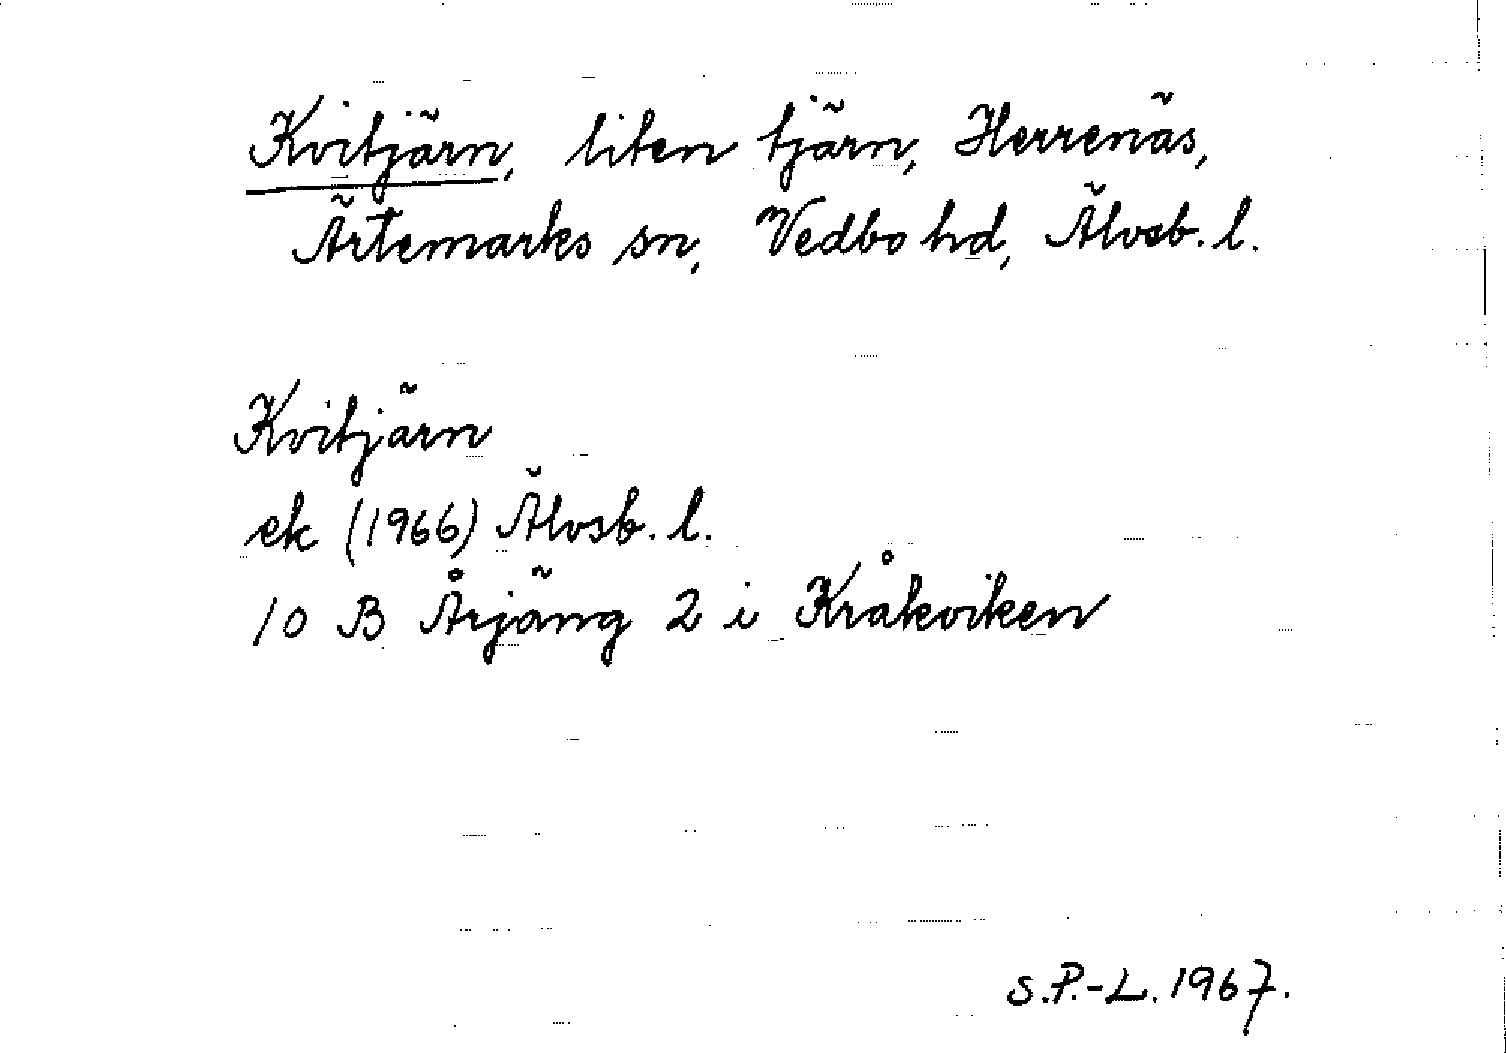 Kvitjärn, liten tjärn, Herrenäs,
Ärtemarks sn, Vedbo hd, Älvsb. l.
Kvitjärn
ek (1966) Älvsb. l.
10 B Årjäng 2 i Kråkviken
S.P.-L. 1967.